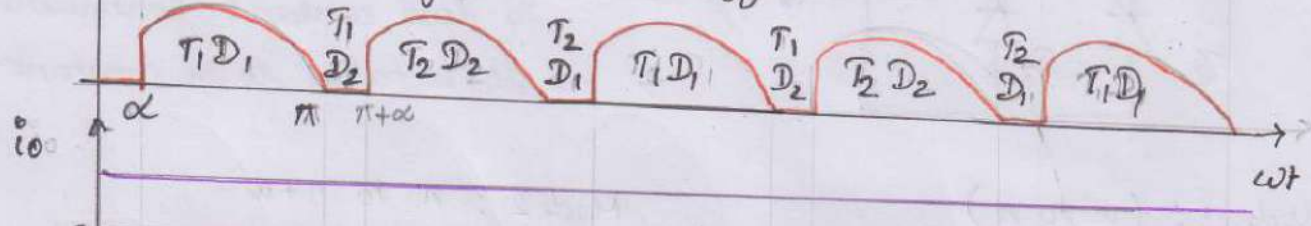 T1 D1
T1
D2
T2 D2
T2
D1
T1 D1
T1
D2
T2 D2
T2
D1
T1 D1
α
π
π+α
io
ωt